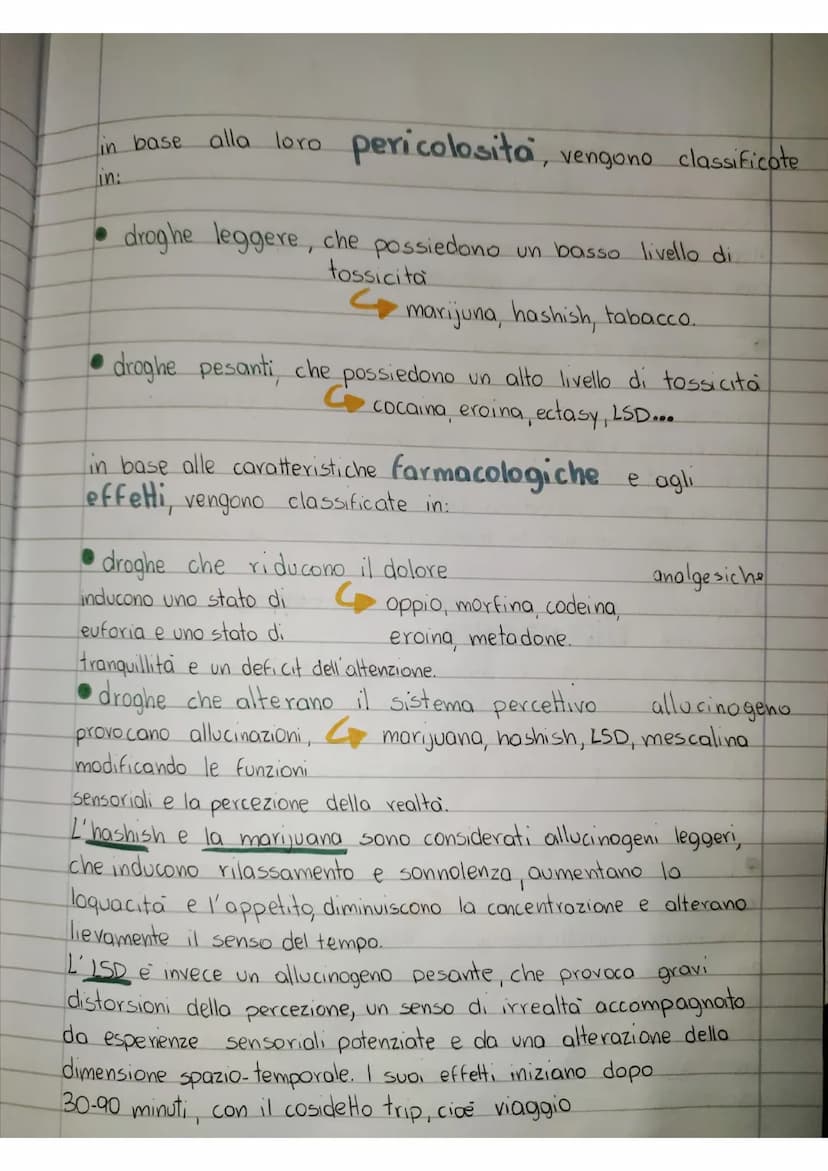 in base alla loro pericolosità, vengono classificate
in:
• droghe leggere, che possiedono un basso livello di
tossicità
↪ marijuna, hashish, tabacco.
• droghe pesanti, che possiedono un alto livello di tossicità
↪ cocaina, eroina, ectasy, LSD...
in base alle caratteristiche farmacologiche e agli
effetti, vengono classificate in:
• droghe che riducono il dolore analgesiche
inducono uno stato di ↪ oppio, morfina, codeina,
euforia e uno stato di eroina, metadone.
tranquillità e un deficit dell'attenzione.
• droghe che alterano il sistema percettivo allucinogeno
provocano allucinazioni, ↪ marijuana, hashish, LSD, mescalina
modificando le funzioni
sensoriali e la percezione della realtà.
L'hashish e la marijuana sono considerati allucinogeni leggeri,
che inducono rilassamento e sonnolenza, aumentano la
loquacità e l'appetito, diminuiscono la concentrazione e alterano
lievamente il senso del tempo.
L'LSD è invece un allucinogeno pesante, che provoca gravi
distorsioni della percezione, un senso di irrealtà accompagnato
da esperienze sensoriali potenziate e da una alterazione della
dimensione spazio-temporale. I suoi effetti iniziano dopo
30-90 minuti, con il cosidetto trip, cioè viaggio